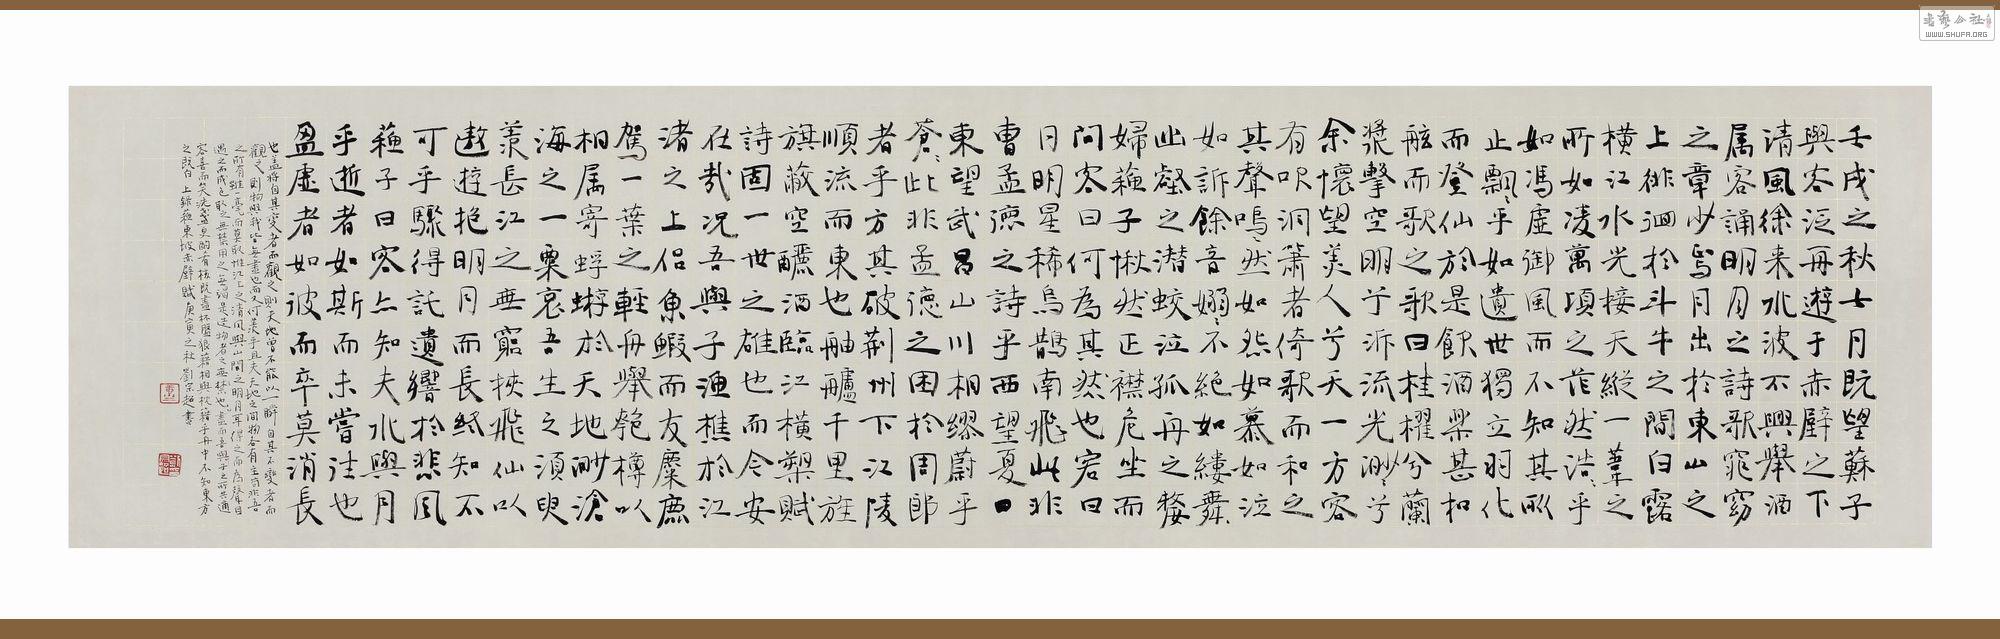 壬戌之秋七月既望蘇子
與客泛舟遊于赤壁之下
清風徐来水波不興舉酒
属客誦明月之詩歌窕窈
之章少焉月出於東山之
上徘徊於斗牛之間白露
橫江水光接天縱一葦之
所如凌萬頃之茫然浩〻乎
如馮虛御風而不知其所
止飄〻乎如遺世獨立羽化
而登仙於是飲酒樂甚扣
舷而歌之歌曰桂櫂兮蘭
槳擊空明兮泝流光渺〻兮
余懷望美人兮天一方客
有吹洞簫者倚歌而和之
其聲嗚〻然如怨如慕如泣
如訴餘音嫋〻不絕如縷舞
幽壑之潜蛟泣孤舟之嫠
婦蘇子愀然正襟危坐而
問客曰何為其然也客曰
月明星稀烏鵲南飛此非
曹孟德之詩乎西望夏口
東望武昌山川相繆蔚乎
蒼〻此非孟德之困於周郎
者乎方其破荊州下江陵
順流而東也舳艫千里旌
旗蔽空釃酒臨江橫槊賦
詩固一世之雄也而今安
在哉况吾與子漁樵於江
渚之上侣魚鰕而友麋鹿
駕一葉之輕舟舉匏樽以
相属寄蜉蝣於天地渺滄
海之一粟哀吾生之須臾
羨長江之無窮挾飛仙以
遨遊抱明月而長終知不
可乎驟得託遺響於悲風
蘇子曰客亦知夫水與月
乎逝者如斯而未嘗往也
盈虛者如彼而卒莫消長
也盖将自其变者而觀之則天地曾不能以一瞬自其不變者而
觀之則物與我皆無盡也而又何羨乎且夫天地之間物各有主苟非吾
之所有雖一毫而莫取惟江上之清風與山間之明月耳得之而為聲目
遇之而成色取之無禁用之不竭是造物者之無盡藏也而吾與子之所共適
客喜而笑洗盞更酌肴核既盡杯盤狼藉相與枕藉乎舟中不知東方
之既白 上錄蘇東坡赤壁賦庚寅之秋 劉宗超書
書藝公社
WWW.SHUFA.ORG